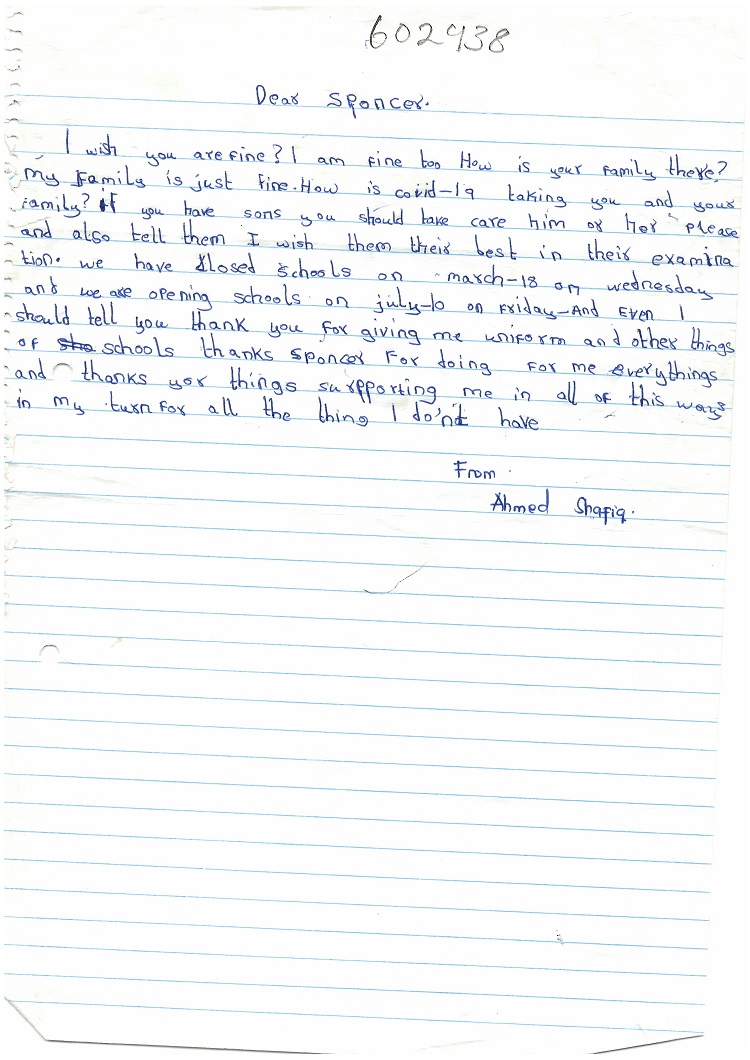 602938
Dear Sponcer.
I wish you are fine? I am fine too How is your family there?
My Family is just fine. How is covid-19 taking you and your
family? If you have sons you should take care him or her please
and also tell them I wish them their best in their examina
tion. we have closed schools on march-18 on wednesday
and we are opening schools on july-10 on Friday-And Even I
should tell you thank you for giving me uniform and other things
of schools thanks sponcer For doing For me everythings
and thanks yor things surpporting me in all of this ways
in my turn for all the thing I do'nt have
From
Ahmed Shafiq.